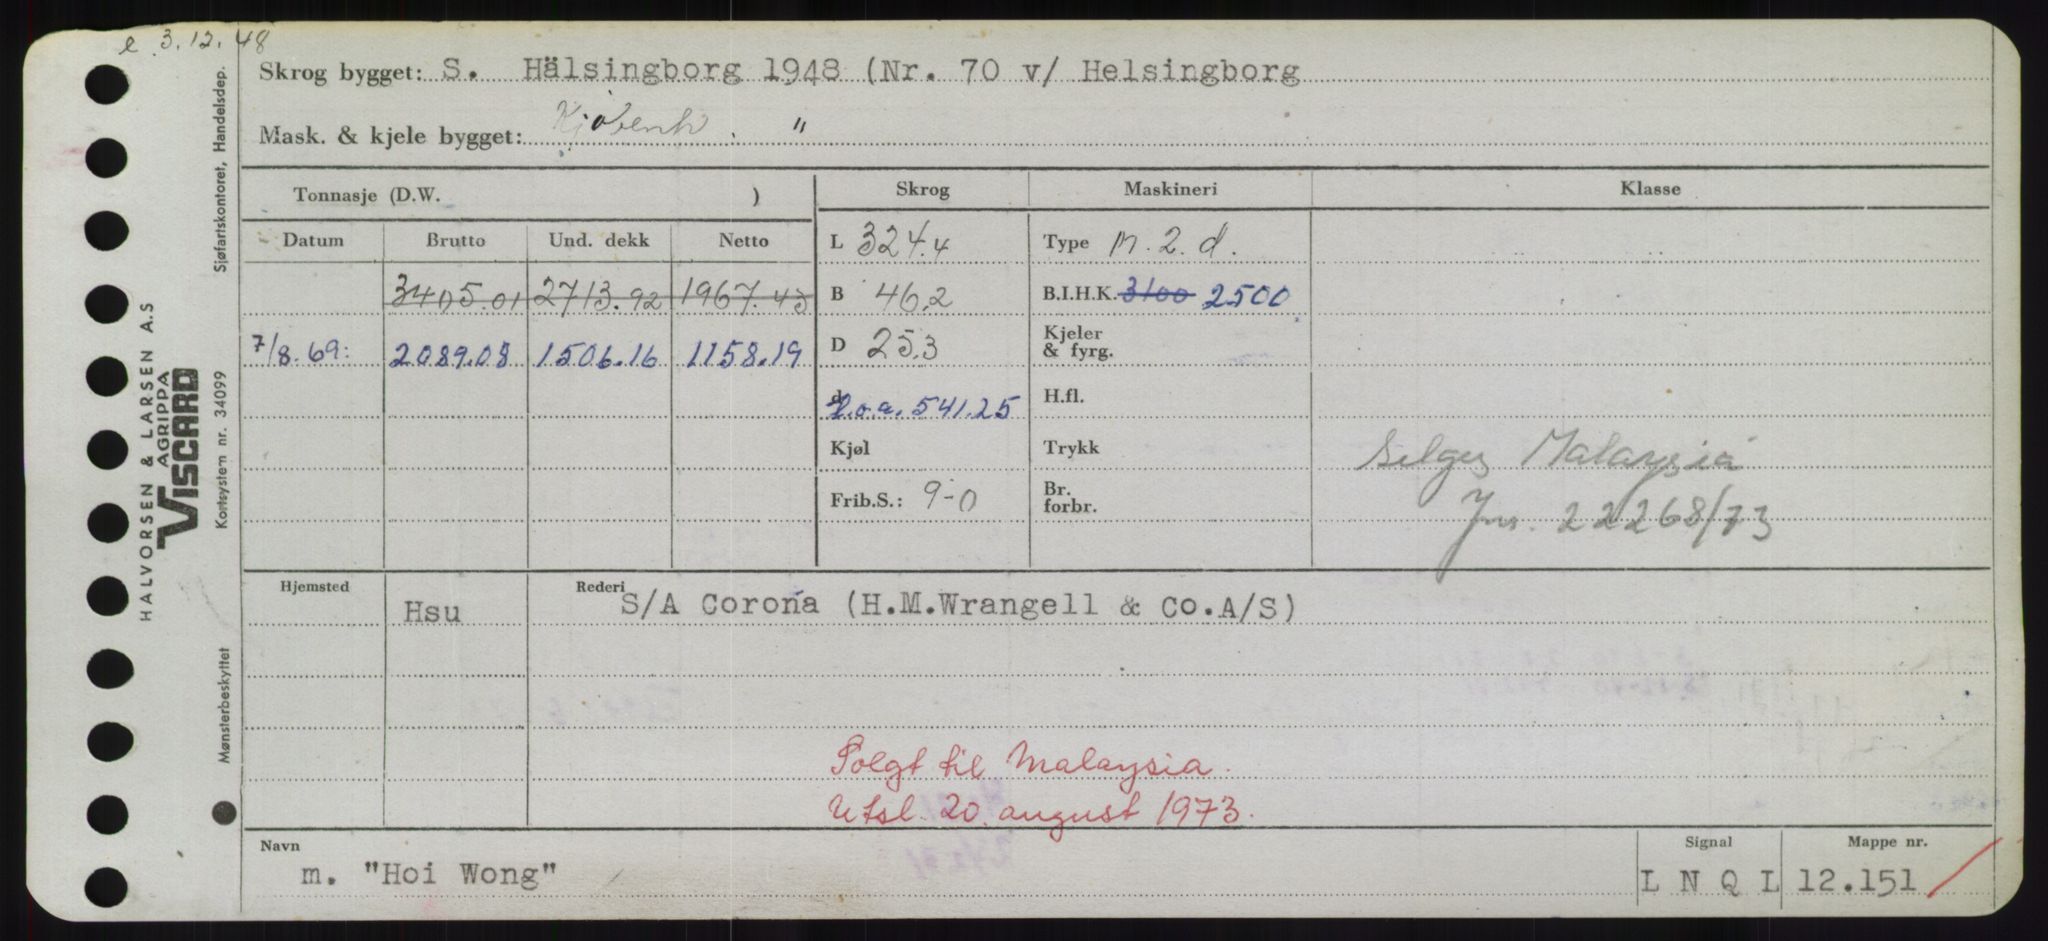 e 3.12.48
Skrog bygget: S. Hälsingborg 1948 (Nr. 70 v/ Helsingborg
Mask. & kjele bygget: Kjøbenh. "
Tonnasje (D.W. )
Skrog
Maskineri
Klasse
Datum
Brutto
Und. dekk
Netto
L 324.4
Type m. 2. d.
3405.01
2713.92
1967.43
B 46.2
B.I.H.K. 3100 2500
7/8.69:
2089.08
1506.16
1158.19
D 25.3
Kjeler
& fyrg.
d
l.o.a. 541.25
H.fl.
Kjøl
Trykk
Selges Malaysia
Frib.S.: 9-0
Br.
forbr.
Jnr. 22268/73
Hjemsted
Hsu
Rederi
S/A Corona (H.M.Wrangell & Co.A/S)
Solgt til Malaysia.
Utsl. 20. august 1973.
Navn
m. "Hoi Wong"
Signal
L N Q L
Mappe nr.
12.151
HALVORSEN & LARSEN A.S
AGRIPPA
VISCARD
Sjøfartskontoret, Handelsdep.
Kortsystem nr. 34099
Mønsterbeskyttet